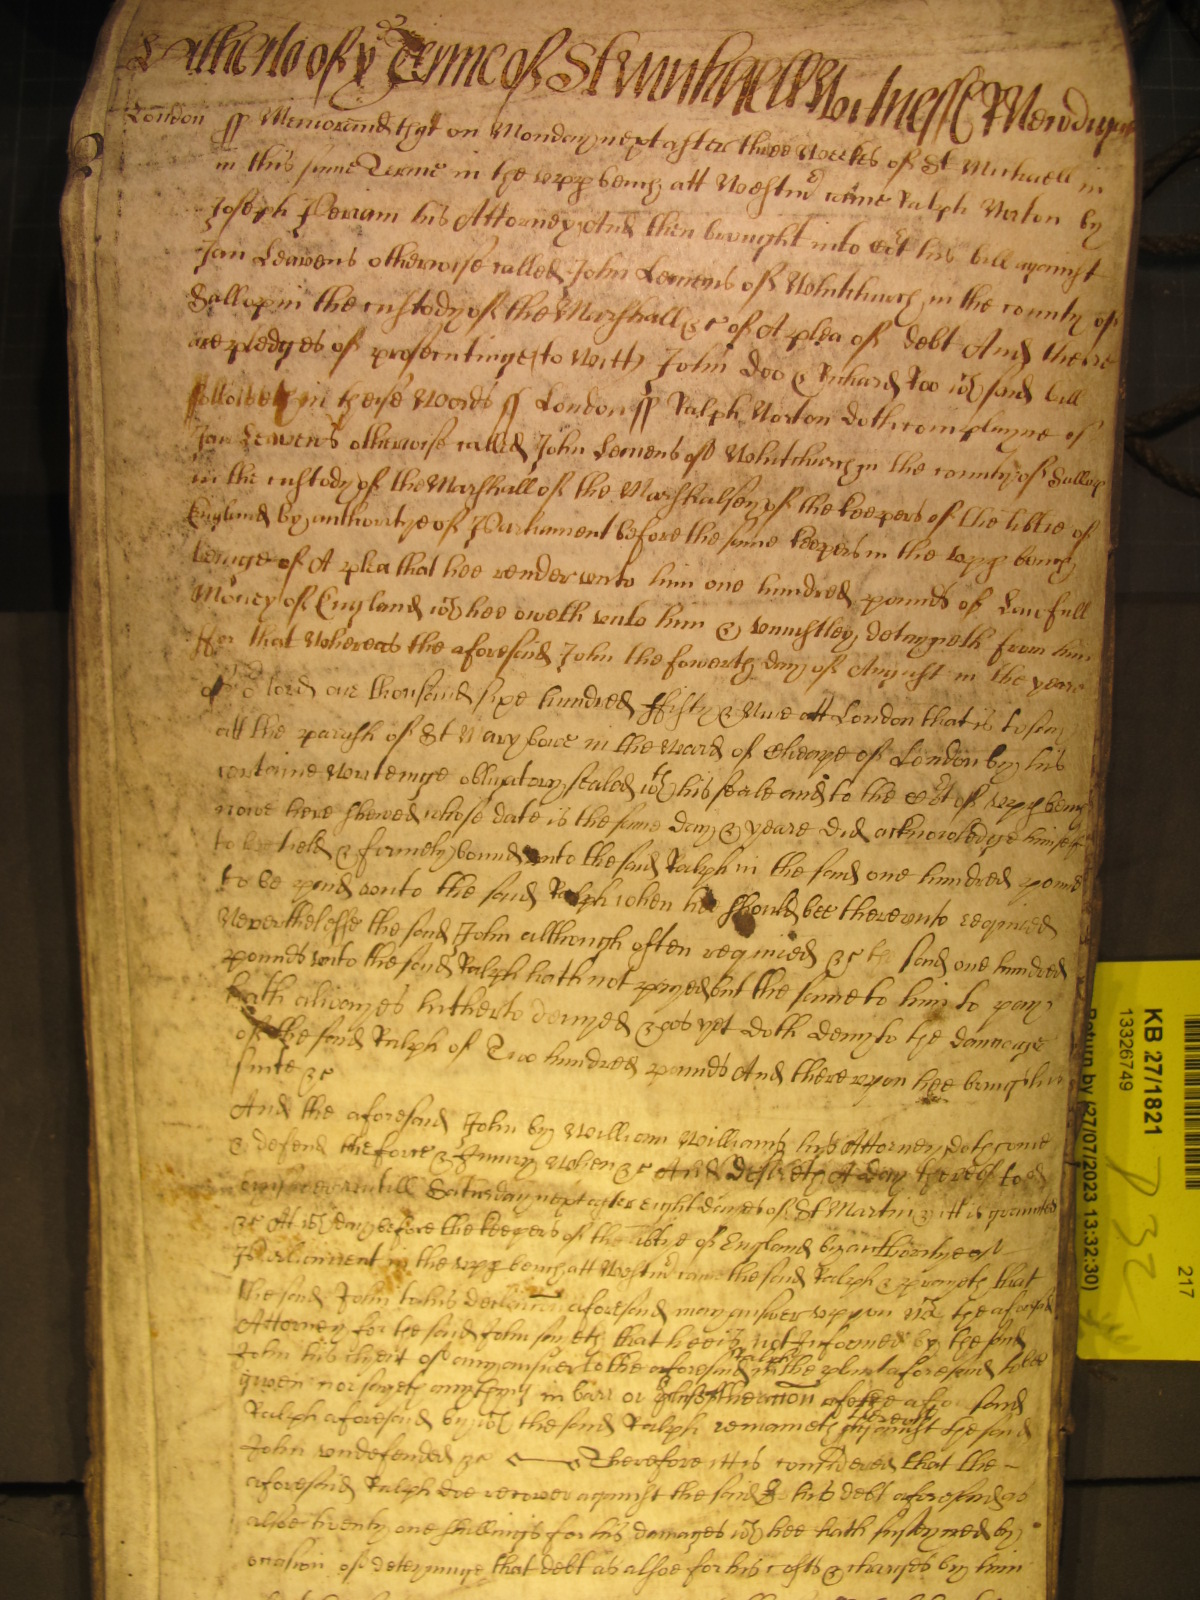 of ye Terme of St Michaell Witnesse R Newdigate
London ss Memorand that on Monday next after three Weekes of St Michaell in
in this same Terme in the upp bench att Westmr came Ralph Norton by
Joseph Perram his Attorney And then brought into Cort his bill against
Jan Leavens otherwise called John Leavens of Whitchurch in the county of
Sallop in the custody of the Marshall &c of A plea of debt And there
are pledges of prosecutinge (to Witt) John Doo & Richard Roo wch said bill
followeth in these Words ss London ss Ralph Norton doth complayne of
Jan Leavens otherwise called John Leavens of Whitchurch in the county of Sallop
in the custody of the Marshall of the Marshalsey of the keepers of the libtie of
England by authoritye of Parliament before the same keepers in the upp bench
beinge of A plea that hee render unto him one hundred pounds of Lawfull
Money of England wch hee oweth unto him & uniustley detayneth from him
ffor that Whereas the aforesaid John the fowerth day of August in the yeare
of or lord one thousand sixe hundred ffifty & Nine att London that is to say
att the parish of St Mary bowe in the Ward of Cheape of London by his
certaine Writeinge obligatory sealed wth his seale and to the Cort of upp bench
nowe here shewed whose date is the same day & yeare did acknowledge himselfe
to be held & firmely bound unto the said Ralph in the said one hundred pounds
to be paid unto the said Ralph when hee should bee thereunto required
Neverthelesse the said John although often required &c the said one hundred
pounds unto the said Ralph hath not payed but the same to him to pay
hath alwayes hitherto denyed & as yet doth deny to the damage
of the said Ralph of Two hundred pounds And thereupon hee brings his
suite &c
And the aforesaid John by William Williams his Attorney doth come
& defend the force & Iniury When &c And desireth A day thereof to
untill Saturday next after eight dayes of St Martin & itt is graunted
&c At wch day before the keepers of the libtye of England by authoritye of
Parliament in the upp bench att Westmr came the said Ralph & prayeth that
the said John to his declaration aforesaid may answer upon wch the aforesaid
Attorney for the said John sayeth that hee is not Informed by the said
John his Clyent of any answer to the aforesaid Ralph in the plea aforesaid to bee
given nor sayeth any thing in barr or of the said
Ralph aforesaid by wch the said Ralph remaineth therein against the said
John undefended &c Therefore itt is considered that the
aforesaid Ralph doe recover against the said Jo his debt aforesaid as
alsoe twenty one shillings for his damages wch hee hath susteyned by
occasion of deteyninge that debt as alsoe for his costs & charges by him
KB 27/1821
13326749
Return by (27/07/2023 13:32:30)
217